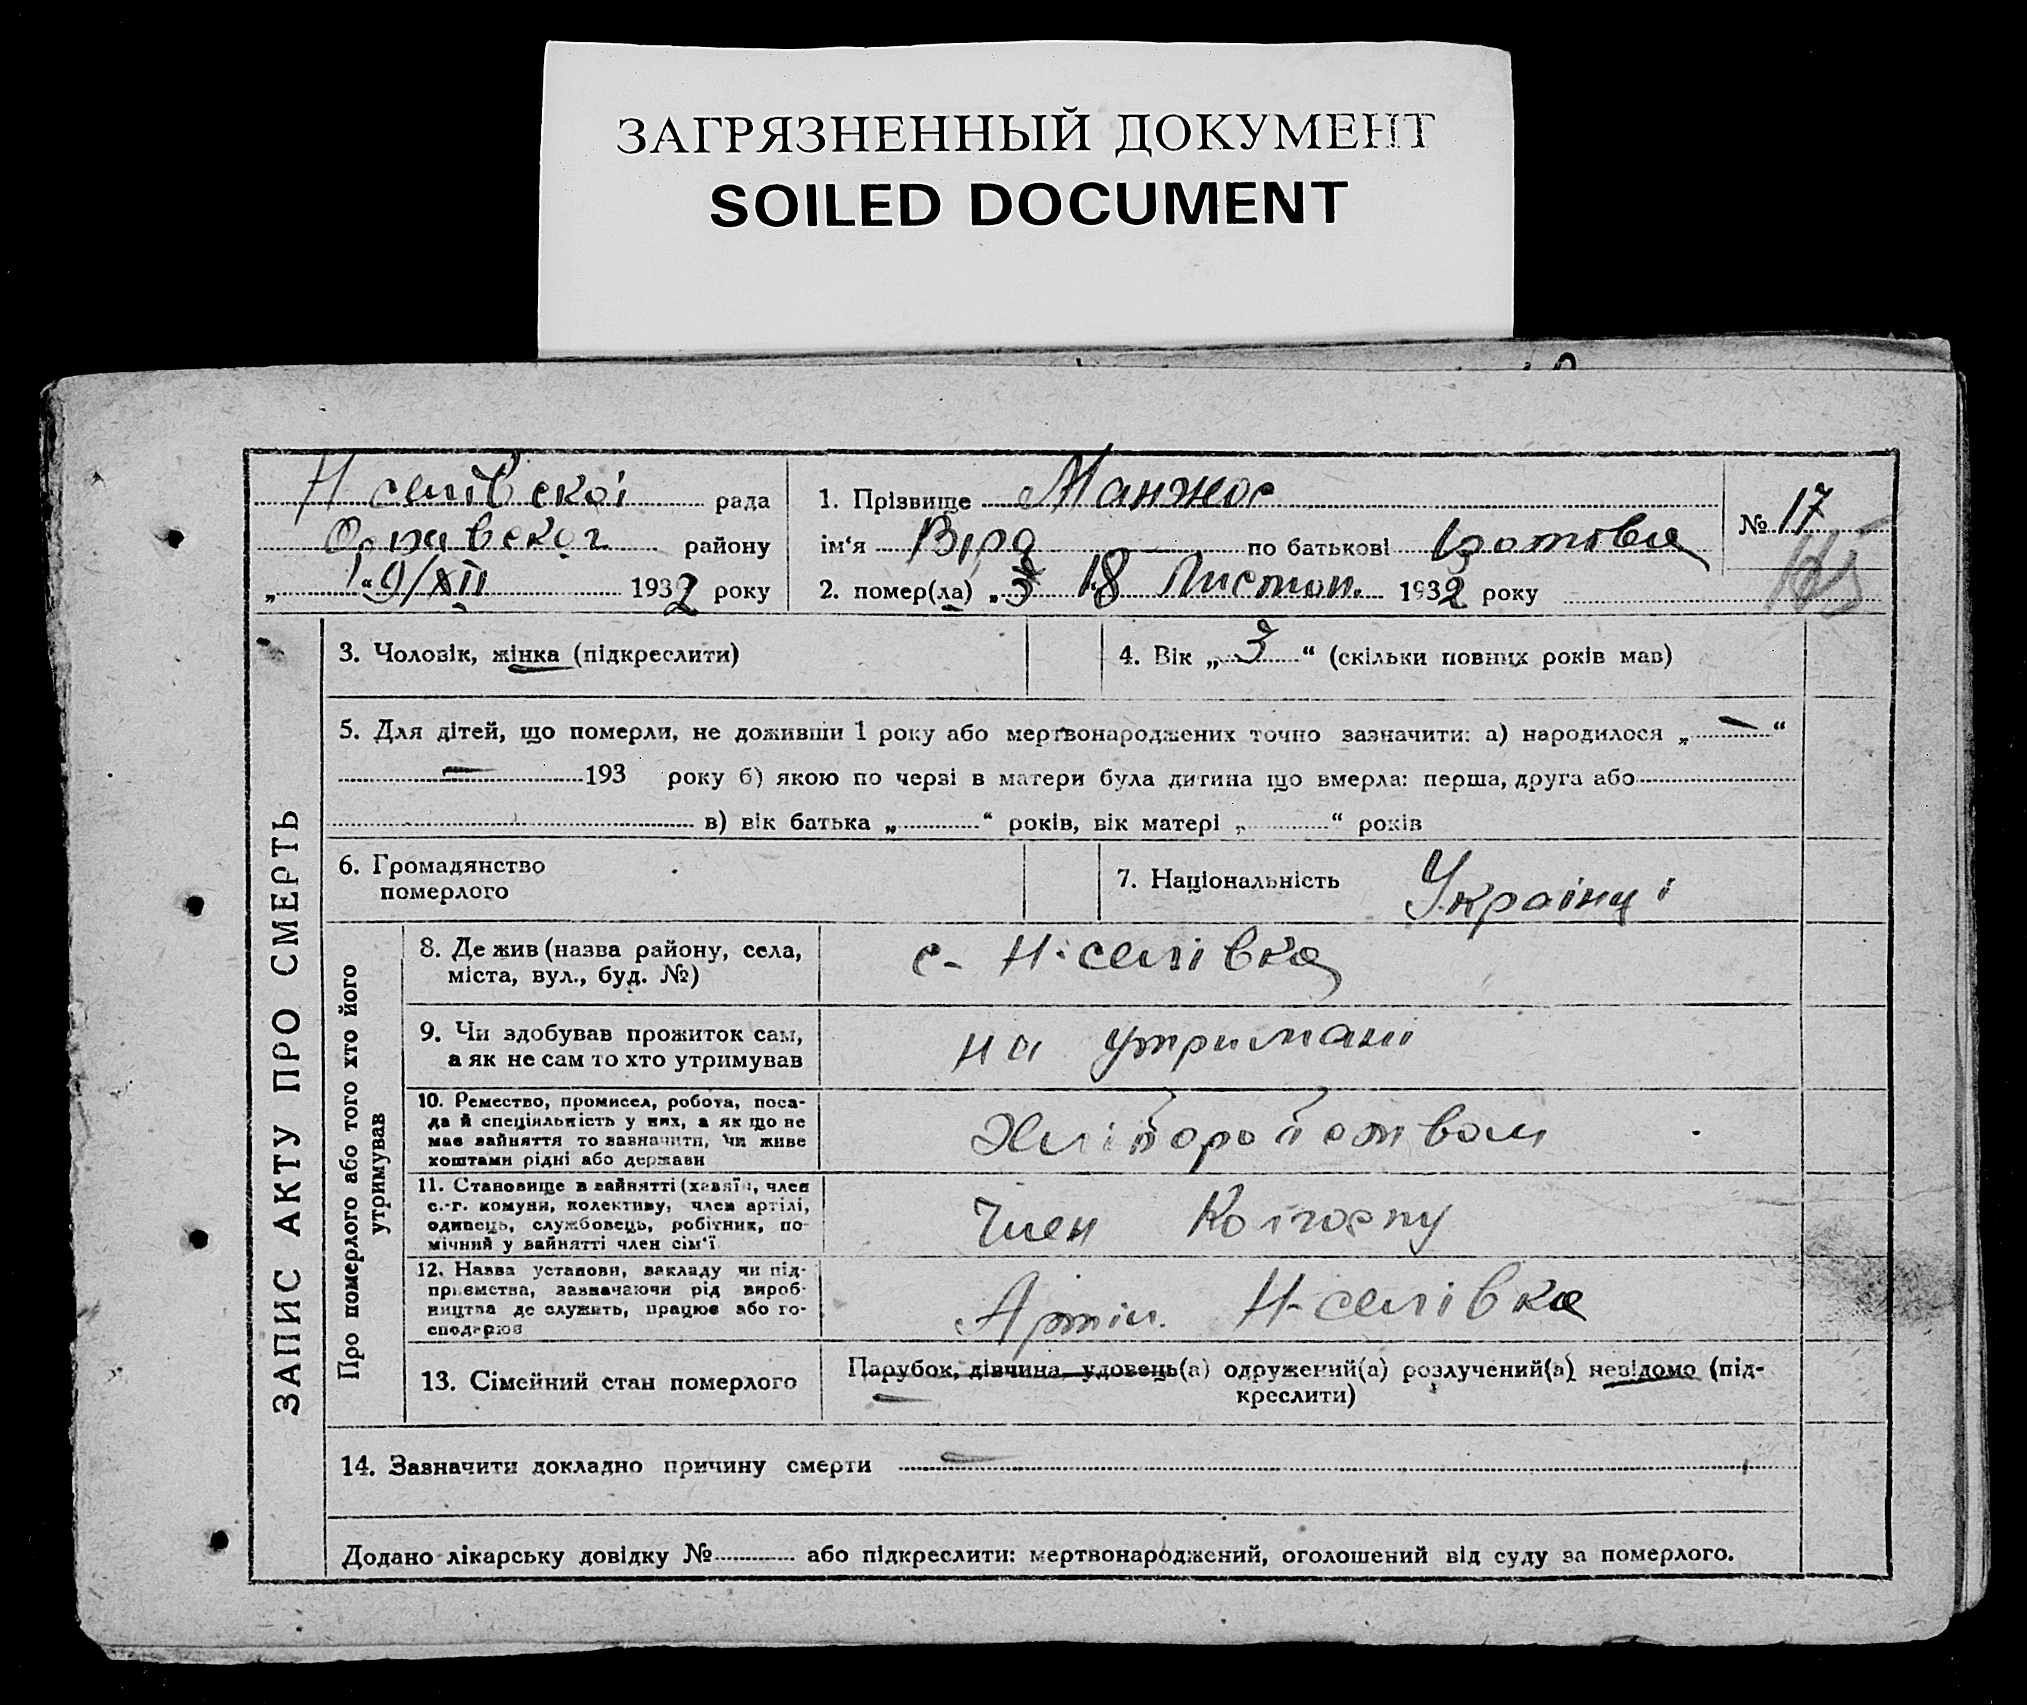 ЗАГРЯЗНЕННЫЙ ДОКУМЕНТ
SOILED DOCUMENT
Н селівскої рада
району
„ 19/XII 1932 року
1. Прізвище Манжос
ім‘я Віра по батькові
2. помер(ла) „ 18 Листоп. 1932 року
№ 17
ЗАПИС АКТУ ПРО СМЕРТЬ
3. Чоловік, жінка (підкреслити)
4. Вік „ 3 “ (скільки повних років мав)
5. Для дітей, що померли, не доживши 1 року або мертвонароджених точно зазначити: а) народилося „ — “
— 193 року б) якою по черзі в матери була дитина що вмерла: перша, друга або
в) вік батька „ “ років, вік матері „ “ років
6. Громадянство
померлого
7. Національність Українці
Про померлого або того хто його
утримував
8. Де жив (назва району, села,
міста, вул., буд. №)
с- Н-селівка
9. Чи здобував прожиток сам,
а як не сам то хто утримував
на утримані
10. Ремество, промисел, робота, поса-
да й спеціяльність у них, а як що не
має зайняття то зазначити, чи живе
коштами рідні або держави
Хліборобством
11. Становище в зайнятті (хазяїн, член
с.-г. комуни, колективу, член артілі,
одинець, службовець, робітник, по-
мічний у зайнятті член сім‘ї
Член Колгоспу
12. Назва установи, закладу чи під-
приємства, зазначаючи рід вироб-
ництва де служить, працює або го-
сподарює
Артіл. Н-селівка
13. Сімейний стан померлого
Парубок, дівчина, удовець(а) одружений(а) розлучений(а) невідомо (під-
креслити)
14. Зазначити докладно причину смерти —
Додано лікарську довідку № або підкреслити: мертвонароджений, оголошений від суду за померлого.